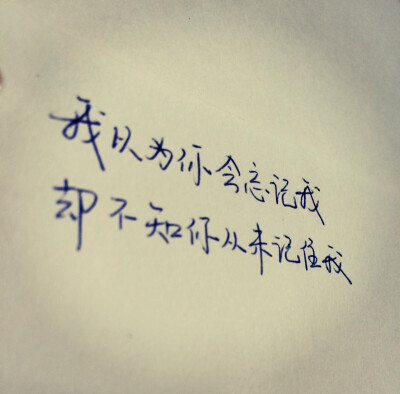 我以为你会忘记我
却不知你从来记住我